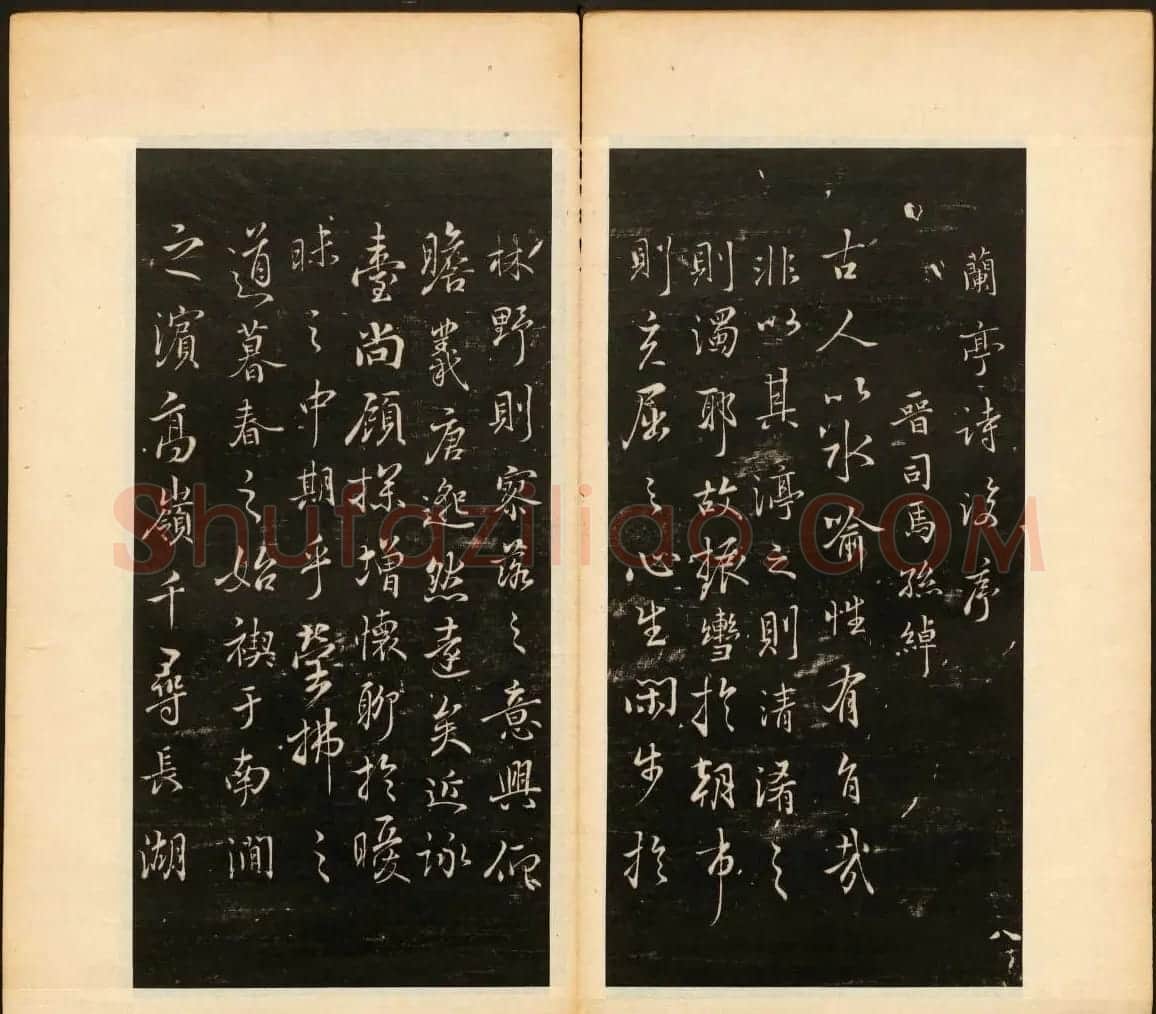 蘭亭詩後序
晉司馬孫綽
古人以水喻性有旨哉
非以其渟之則清淆之
則濁耶故振轡於朝市
則充屈之心生閑步於
林野則寥落之意興仰
瞻羲唐邈然遠矣近詠
臺尚顧探增懷聊於曖
昧之中期乎瑩拂之
道暮春之始禊于南澗
之濱高嶺千尋長湖
Shufaziliao.COM